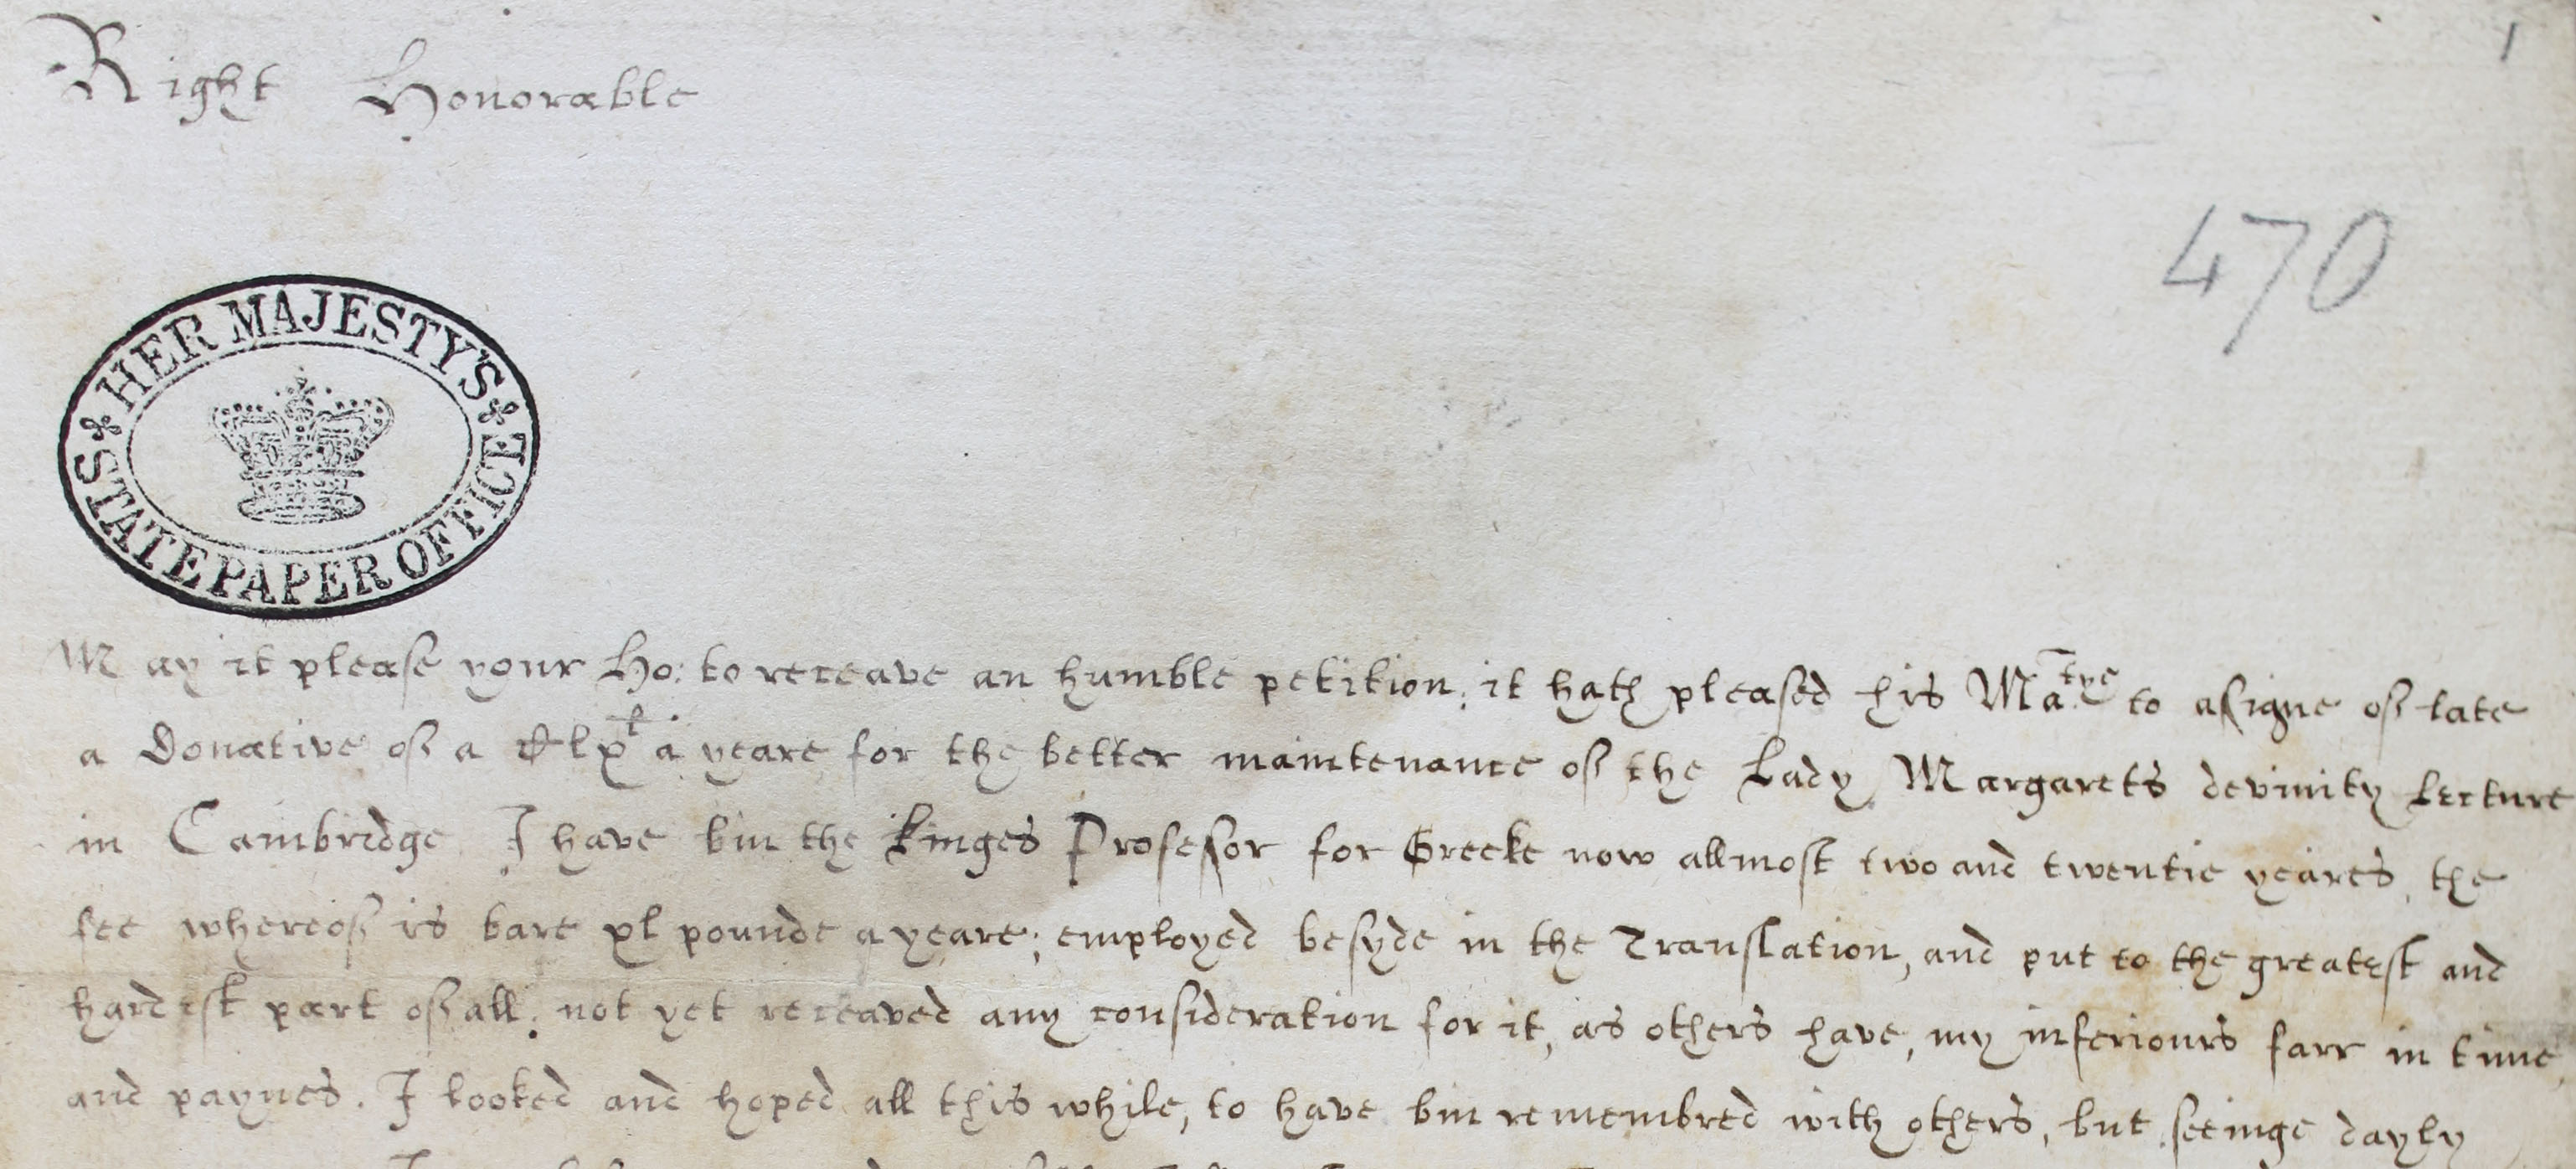 1
Right Honorable
470
HER MAJESTY'S
STATE PAPER OFFICE
May it please your Ho: to receave an humble petition; it hath pleased his Ma:tye to assigne of late
a Donative of a Clxl a yeare for the better maintenance of the Lady Margarets devinity Lecture
in Cambridge, I have bin the kinges Professor for Greeke now allmost two and twentie yeares, the
fee whereof is bare xl pounde a yeare; employed besyde in the Translation, and put to the greatest and
hardest part of all; not yet receaved any consideration for it, as others have, my inferiours farr in time,
and paynes. I looked and hoped all this while, to have bin remembred with others, but seeinge dayly